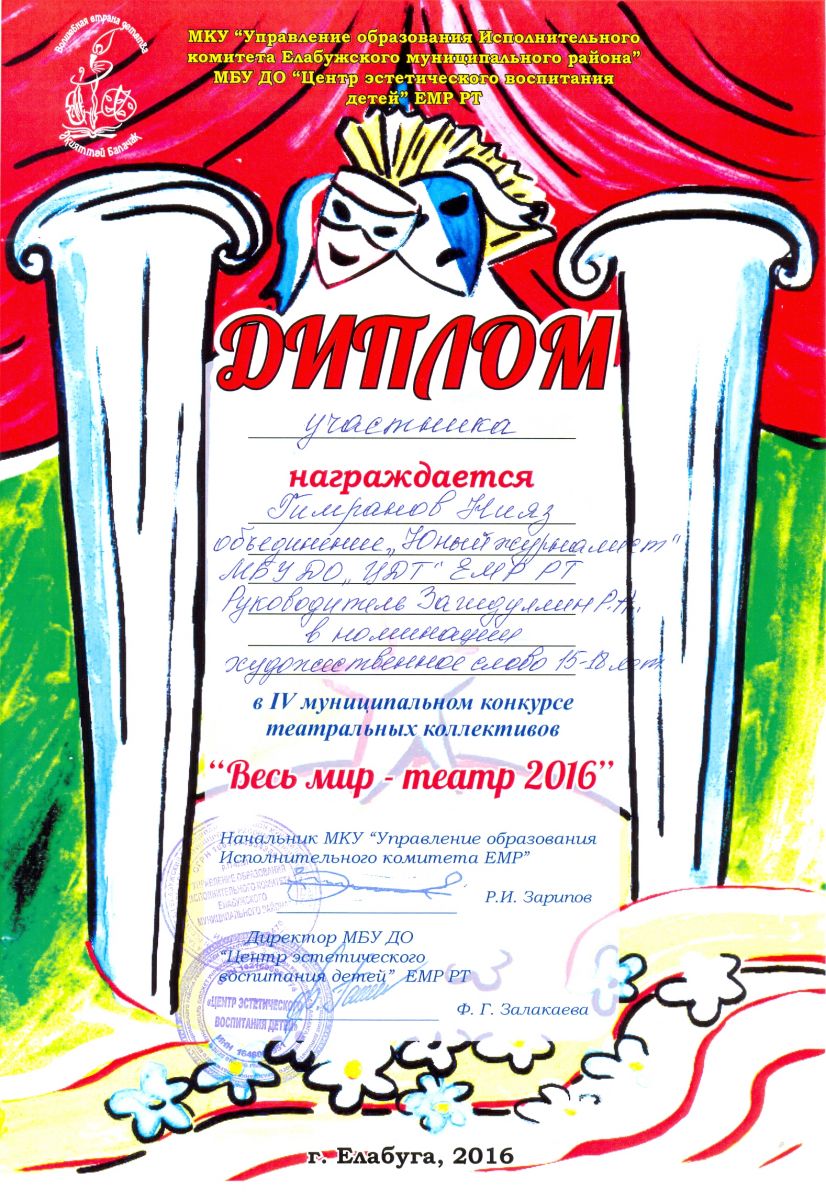 Волшебная страна детства
МКУ “Управление образования Исполнительного
комитета Елабужского муниципального района”
МБУ ДО “Центр эстетического воспитания
детей” ЕМР РТ
Әкияттәй балачак
ДИПЛОМ
участника
награждается
Гимранов Нияз
объединение „Юный журналист“
МБУ ДО „ЦДТ“ ЕМР РТ
Руководитель Загидуллин Р.Н.
в номинации
художественное слово 15-18 лет
в IV муниципальном конкурсе
театральных коллективов
“Весь мир - театр 2016”
Начальник МКУ “Управление образования
Исполнительного комитета ЕМР”
УПРАВЛЕНИЕ ОБРАЗОВАНИЯ
ИСПОЛНИТЕЛЬНОГО КОМИТЕТА
ЕЛАБУЖСКОГО
МУНИЦИПАЛЬНОГО РАЙОНА
Р.И. Зарипов
Директор МБУ ДО
“Центр эстетического
воспитания детей” ЕМР РТ
«ЦЕНТР ЭСТЕТИЧЕСКОГО
ВОСПИТАНИЯ ДЕТЕЙ»
Ф. Г. Залакаева
г. Елабуга, 2016